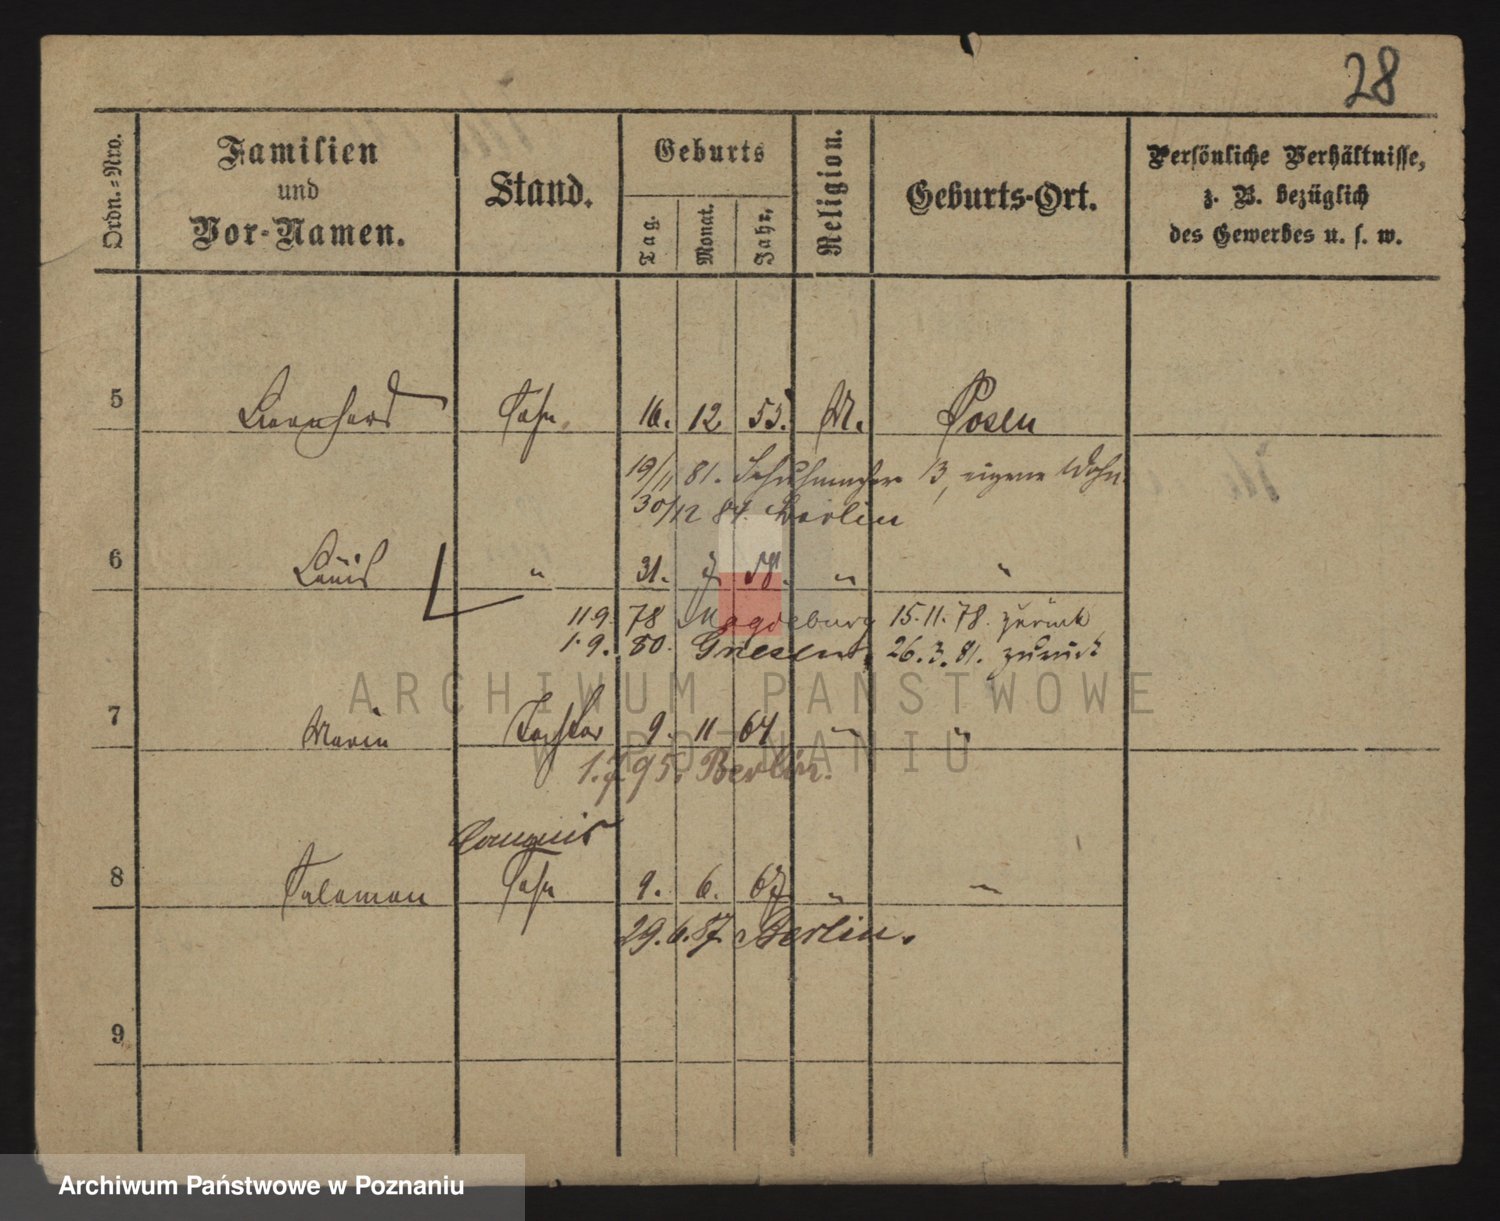 28
Ordn.=Nro.
Familien
und
Vor-Namen.
Stand.
Geburts
Tag.
Monat.
Jahr.
Religion.
Geburts-Ort.
Persönliche Verhältnisse,
z. B. bezüglich
des Gewerbes u. s. w.
5 Bernhard Sohn. 16. 12 55. M. Posen
19/11 81. Schuhmacher 13, eigene Wohn.
30/12 84. Berlin
6 Louis " 31. 7. 58. " "
11.9. 78 Magdeburg 15.11.78. zurück
1.9. 80. Gnesen, 26.3.81. zurück
7 Marie Tochter 9. 11 64 " "
1.7.95. Berlin.
Commis
8 Salomon Sohn 9. 6. 67 " "
29.6.87. Berlin.
9
ARCHIWUM PAŃSTWOWE
W POZNANIU
Archiwum Państwowe w Poznaniu